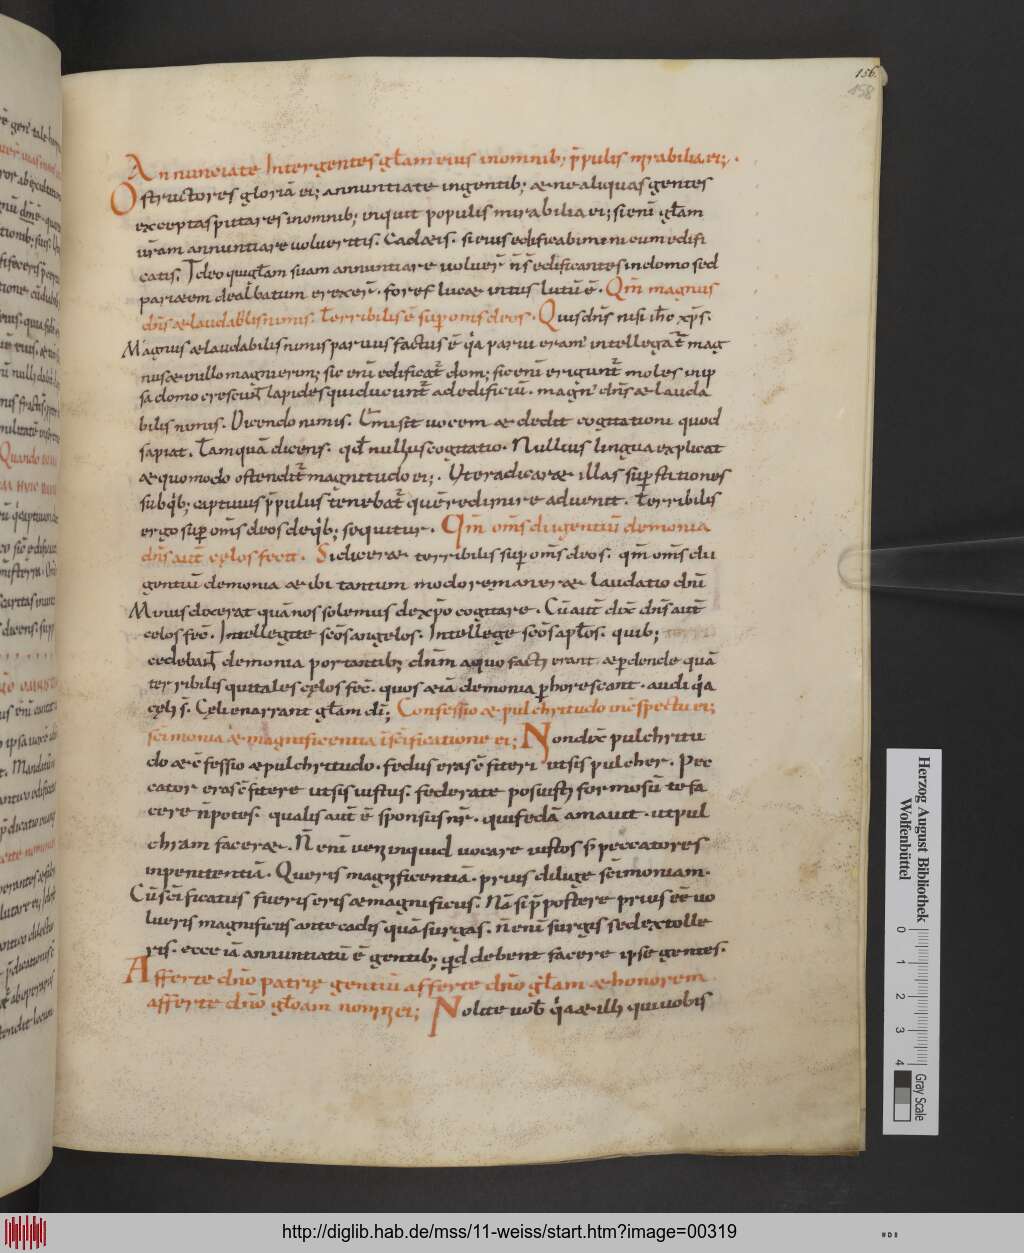 156.
158
Annunciate Intergentes gl̄am eius inomnib; p̄pulis mirabilia ei;.
Ostructores gloriā ei; annuntiate ingentib; & ne aliquas gentes
exceptas putares inomnib; inquit populis mirabilia ei; si enī gl̄am
ūram annuntiare uolueritis. Cad&is. si eius edificabimini cum edifi
catis. Ideo qui gl̄am suam annuntiare uoluer̄ n̄ s̄ edificantes in domo sed
pari&em dealbatum erexer̄. foref luc& intus lutū ē. Qm̄ magnus
dn̄s & laudabilis nimis. Terribilis ē sup om̄s deos. Quis dn̄s nisi ih̄c xp̄s.
Magnus & laudabilis nimis paruus factus ē q̇a parui erant intellegat̄ mag
nus & in illo magni erim; sic enī edificat̄ dom; sic enī erigunt̄ moles in ip
sa domo crescun̄t lapides qui ducunt̄ ad edificiū. magn' dn̄s & lauda
bilis nimis. Dicendo nimis. Emisit uocem & dedit cogitationi quod
sapiat. Tamquā dicens. qd̄ nullus cogitatio. Nullius lingua explicat
& quomodo ostendit̄ magnitudo ei;. Ut eradicar& illas sup stitiones
sub q̇b; captiuus p̄pulus tenebat̄ quē redimire aduenit. terribilis
ergo sup om̄s deos de q̇b; sequitur. Qm̄ om̄s dii gentiū demonia
dn̄s aut̄ cęlos fecit. Si dicer& terribilis sup om̄s deos. qm̄ om̄s dii
gentiū demonia & ibi tantum modo remaner& laudatio dn̄i
Minus dixerat quā nos solemus de xp̄o cogitare. Cū aut̄ dix̄ dn̄s aut̄
celos fec̄. Intellegite sc̄os angelos. Intellege sc̄os ap̄los. quib;
cedebant̄ demonia portantib; dn̄m a quo facti erant. & pdende quā
terribilis qui tales cęlos fec̄. quos & iā demonia phorescant. audi q̇a
cęli s̄. Cęli enarrant gl̄am dī; Confessio & pulchritudo in cspectu ei;
sc̄imonia & magnificentia ī sc̄ificatione ei; Non dix̄ pulchritu
do & c̄fessio & pulchritudo. fedus eras c̄fiteri ut sis pulcher. Pec
cator eras c̄fitere ut sis iustus. federate posuisti formosū te fa
cere n̄ potes. qualis aut̄ ē sponsus nr̄. qui fedā amauit. ut pul
chram facer&. N̄ enī ueni inquid uocare iustos s̄ peccatores
in penitentiā. Queris magnificentiā. prius dilige sc̄imoniam.
Cū sc̄ificatus fueris eris & magnificus. Nā si p̄postere prius eē uo
lueris magnificus ante cadis quā surgas. n̄ enī surgis sed extolle
ris. ecce iā annuntiatū ē gentib; qd̄ debent facere ipse gentes.
Afferte dn̄o patrię gentiū afferte dn̄o gl̄am & honorem
afferte dn̄o gl̄oam nomini ei; Nolite uob̄ q̇a & illi qui uobis
Herzog August Bibliothek
Wolfenbüttel
0
1
2
3
4
Gray Scale
http://diglib.hab.de/mss/11-weiss/start.htm?image=00319